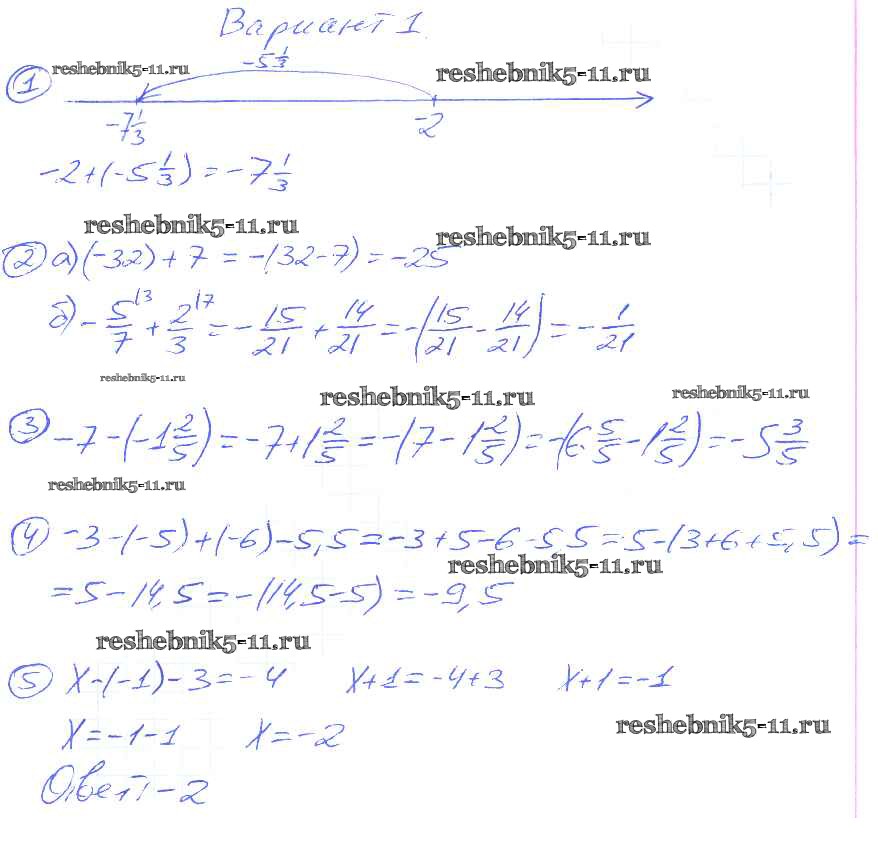 Вариант 1.
reshebnik5-11.ru -5 1/3 reshebnik5-11.ru
1
-7 1/3 -2
-2+(-5 1/3)=-7 1/3
reshebnik5-11.ru reshebnik5-11.ru
2 а)(-32)+7=-(32-7)=-25
б)-5/7 |3 + 2/3 |7 = -15/21 + 14/21 = -(15/21 - 14/21) = -1/21
reshebnik5-11.ru reshebnik5-11.ru reshebnik5-11.ru
3 -7-(-1 2/5)=-7+1 2/5=-(7-1 2/5)=-(6 5/5-1 2/5)=-5 3/5
reshebnik5-11.ru
4 -3-(-5)+(-6)-5,5=-3+5-6-5,5=5-(3+6+5,5)=
reshebnik5-11.ru
=5-14,5=-(14,5-5)=-9,5
reshebnik5-11.ru
5 X-(-1)-3=-4 X+1=-4+3 X+1=-1
reshebnik5-11.ru
X=-1-1 X=-2
Ответ:-2